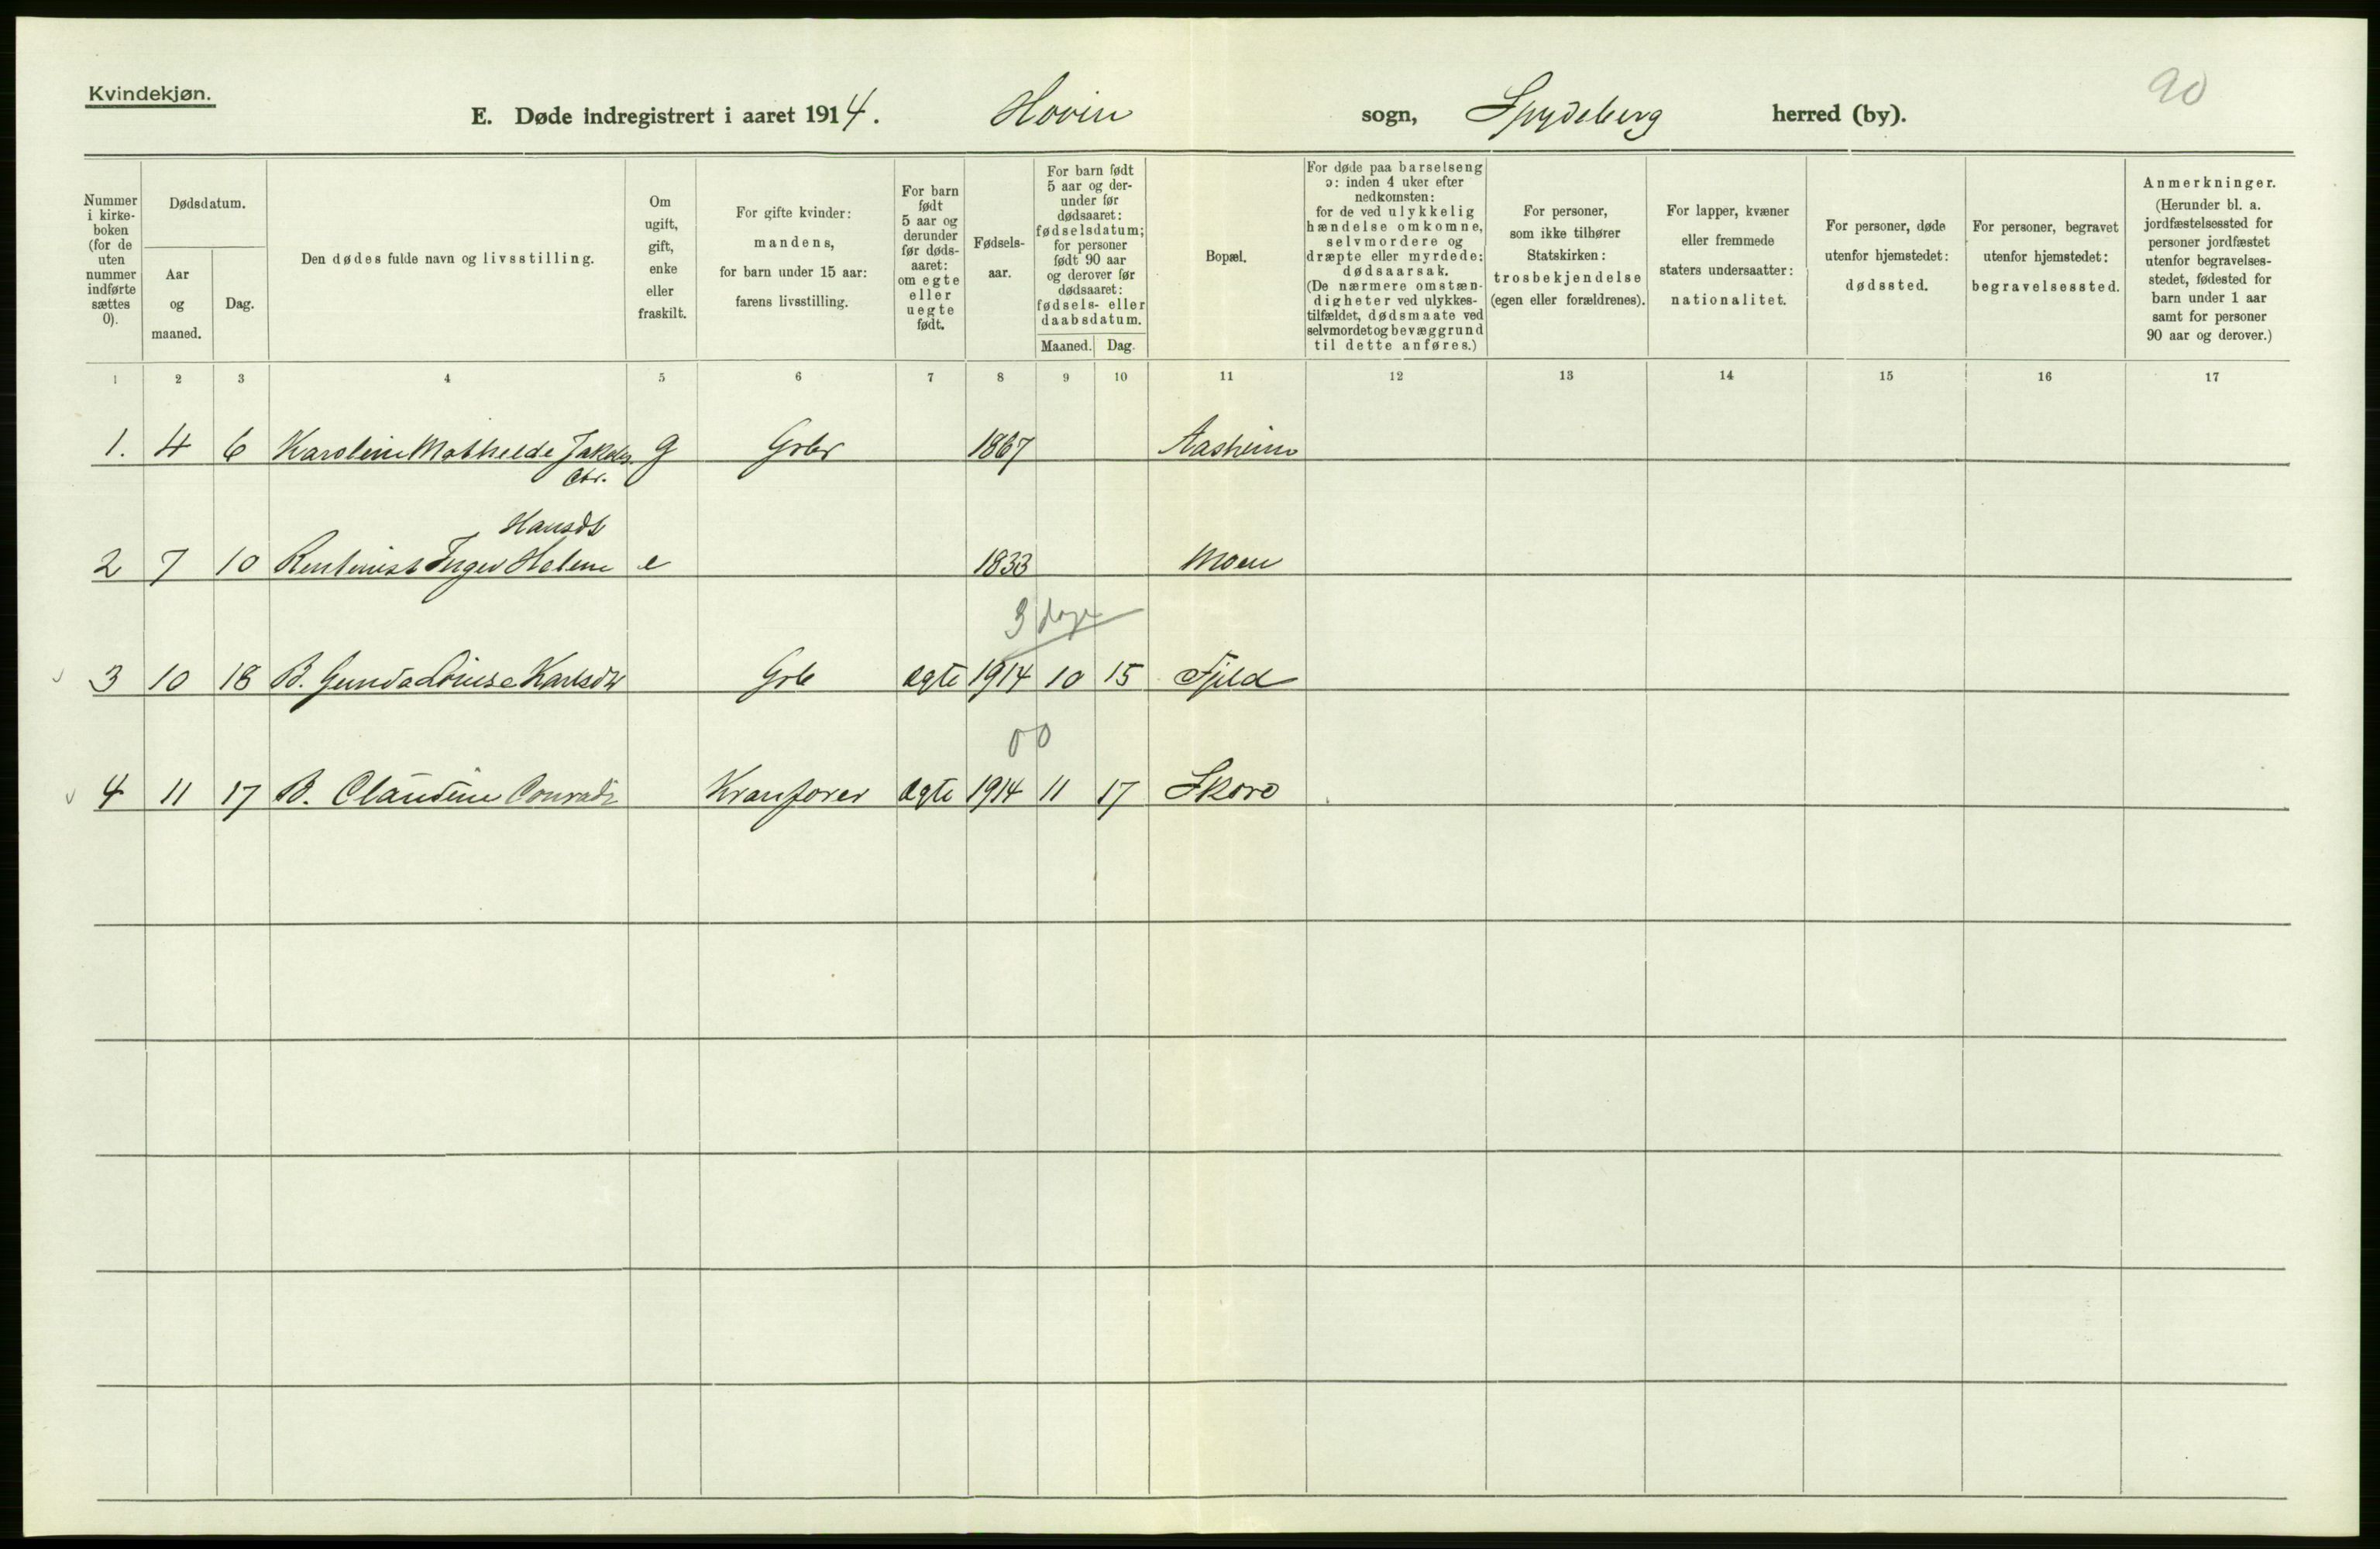 Kvindekjøn.
90
E. Døde indregistrert i aaret 1914. Hovin sogn, Spydeberg herred (by).
Nummer i kirke- boken (for de uten nummer indførte sættes 0).
Dødsdatum.
Aar og maaned.
Dag.
Den dødes fulde navn og livsstilling.
Om ugift, gift, enke eller fraskilt.
For gifte kvinder: mandens, for barn under 15 aar: farens livsstilling.
For barn født 5 aar og derunder før døds- aaret: om egte eller uegte født.
Fødsels- aar.
For barn født 5 aar og der- under før dødsaaret: fødselsdatum; for personer født 90 aar og derover før dødsaaret: fødsels- eller daabsdatum.
Maaned. Dag.
Bopæl.
For døde paa barselseng ɔ: inden 4 uker efter nedkomsten: for de ved ulykkelig hændelse omkomne, selvmordere og dræpte eller myrdede: dødsaarsak. (De nærmere omstæn- digheter ved ulykkes- tilfældet, dødsmaate ved selvmordet og bevæggrund til dette anføres.)
For personer, som ikke tilhører Statskirken: trosbekjendelse (egen eller forældrenes).
For lapper, kvæner eller fremmede staters undersaatter: nationalitet.
For personer, døde utenfor hjemstedet: dødssted.
For personer, begravet utenfor hjemstedet: begravelsessted.
Anmerkninger. (Herunder bl. a. jordfæstelsessted for personer jordfæstet utenfor begravelses- stedet, fødested for barn under 1 aar samt for personer 90 aar og derover.)
1 2 3 4 5 6 7 8 9 10 11 12 13 14 15 16 17
1. 4 6 Karoline Mathilde g Gbr 1867 Aasheim
Hansdt
2 7 10 Rentenist Inger Helene e 1833 Moen
3 dage
3 10 18 B. Gunda Louise Karlsdt Gb egte 1914 10 15 Fjeld
00
4 11 17 B. Claudine Conradi Kranfører egte 1914 11 17 Skoro